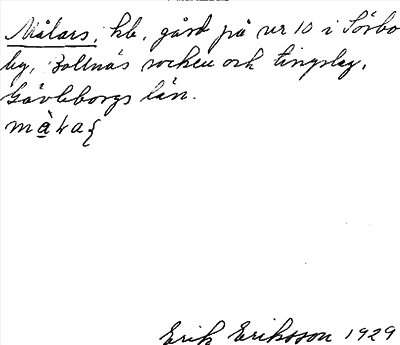 Målars, hb, gård på nr 10 i Sörbo
by, Bollnäs socken och tingslag,
Gävleborgs län.
Erik Eriksson 1929